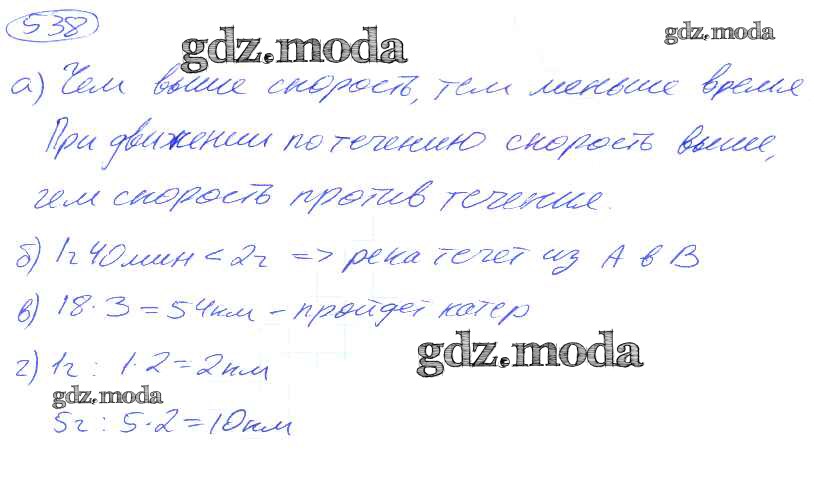 538
gdz.moda
gdz.moda
а) Чем выше скорость, тем меньше время
При движении по течению скорость выше,
чем скорость против течения.
б) 1ч 40мин < 2ч => река течет из А в В
в) 18·3=54км – пройдет катер
gdz.moda
г) 1ч : 1·2=2км
gdz.moda
5ч : 5·2=10км